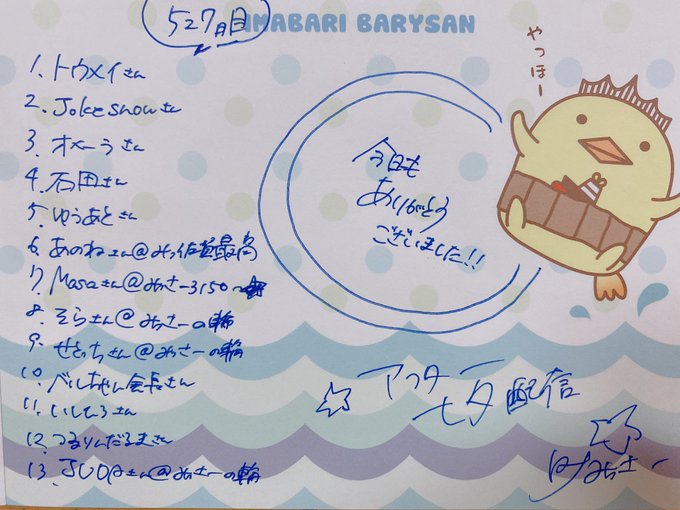 527日目
IMABARI BARYSAN
やっほー
1. トウメイさん
2. Jokeshowさん
3. オペーラさん
4. 石田さん
5. ゆうあとさん
6. あのねさん@みっ佐藤最高
7. Masaさん@みっさー3150
8. そらさん@みっさーの輪
9. せとっちさん@みっさーの輪
10. べいちゃん会長さん
11. いしころさん
12. つるりんだるまさん
13. JUDAさん@みっさーの輪
今日も
ありがとう
ございました!!
アフター
七夕配信
みっさー